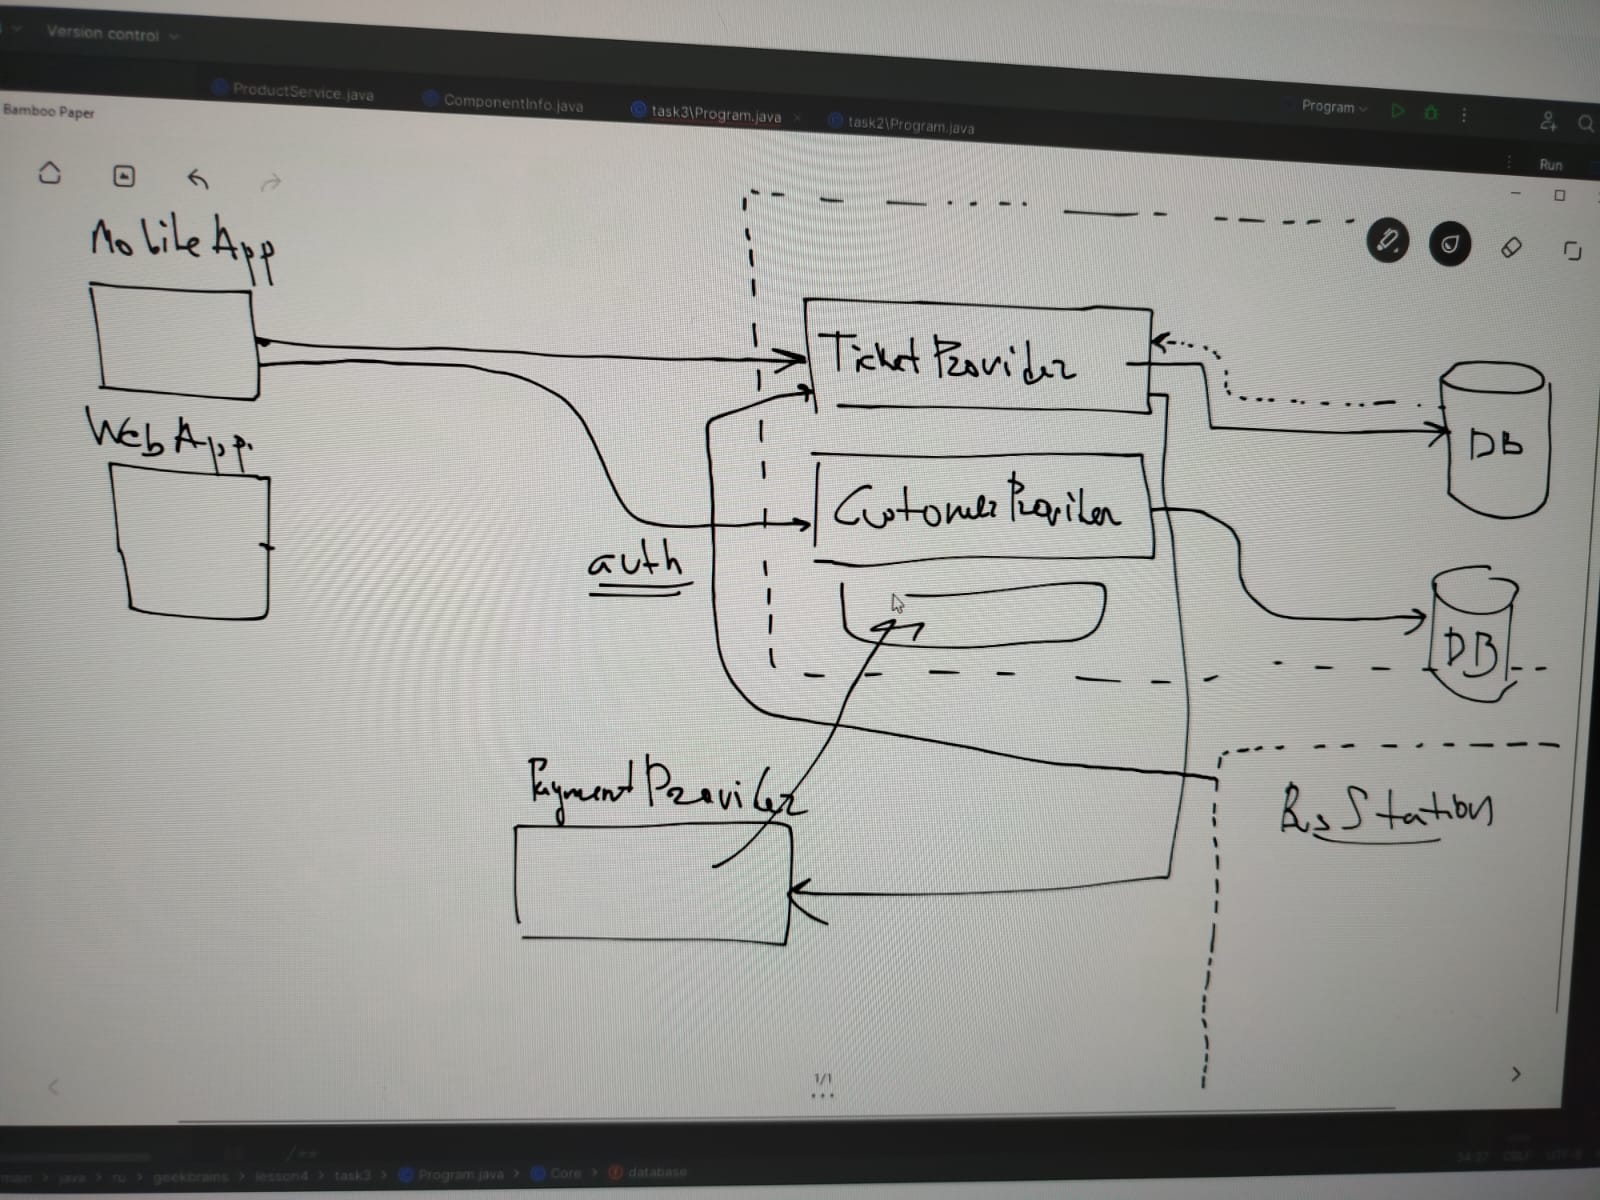 Version control
ProductService.java
ComponentInfo.java
task3\Program.java
task2\Program.java
Program
Bamboo Paper
Run
Mobile App
Web App.
Ticket Provider
Customer Provider
DB
DB
auth
Payment Provider
Bus Station
1/1
main > java > ru > geekbrains > lesson4 > task3 > Program.java > Core > database
34:37 CRLF UTF-8
/**